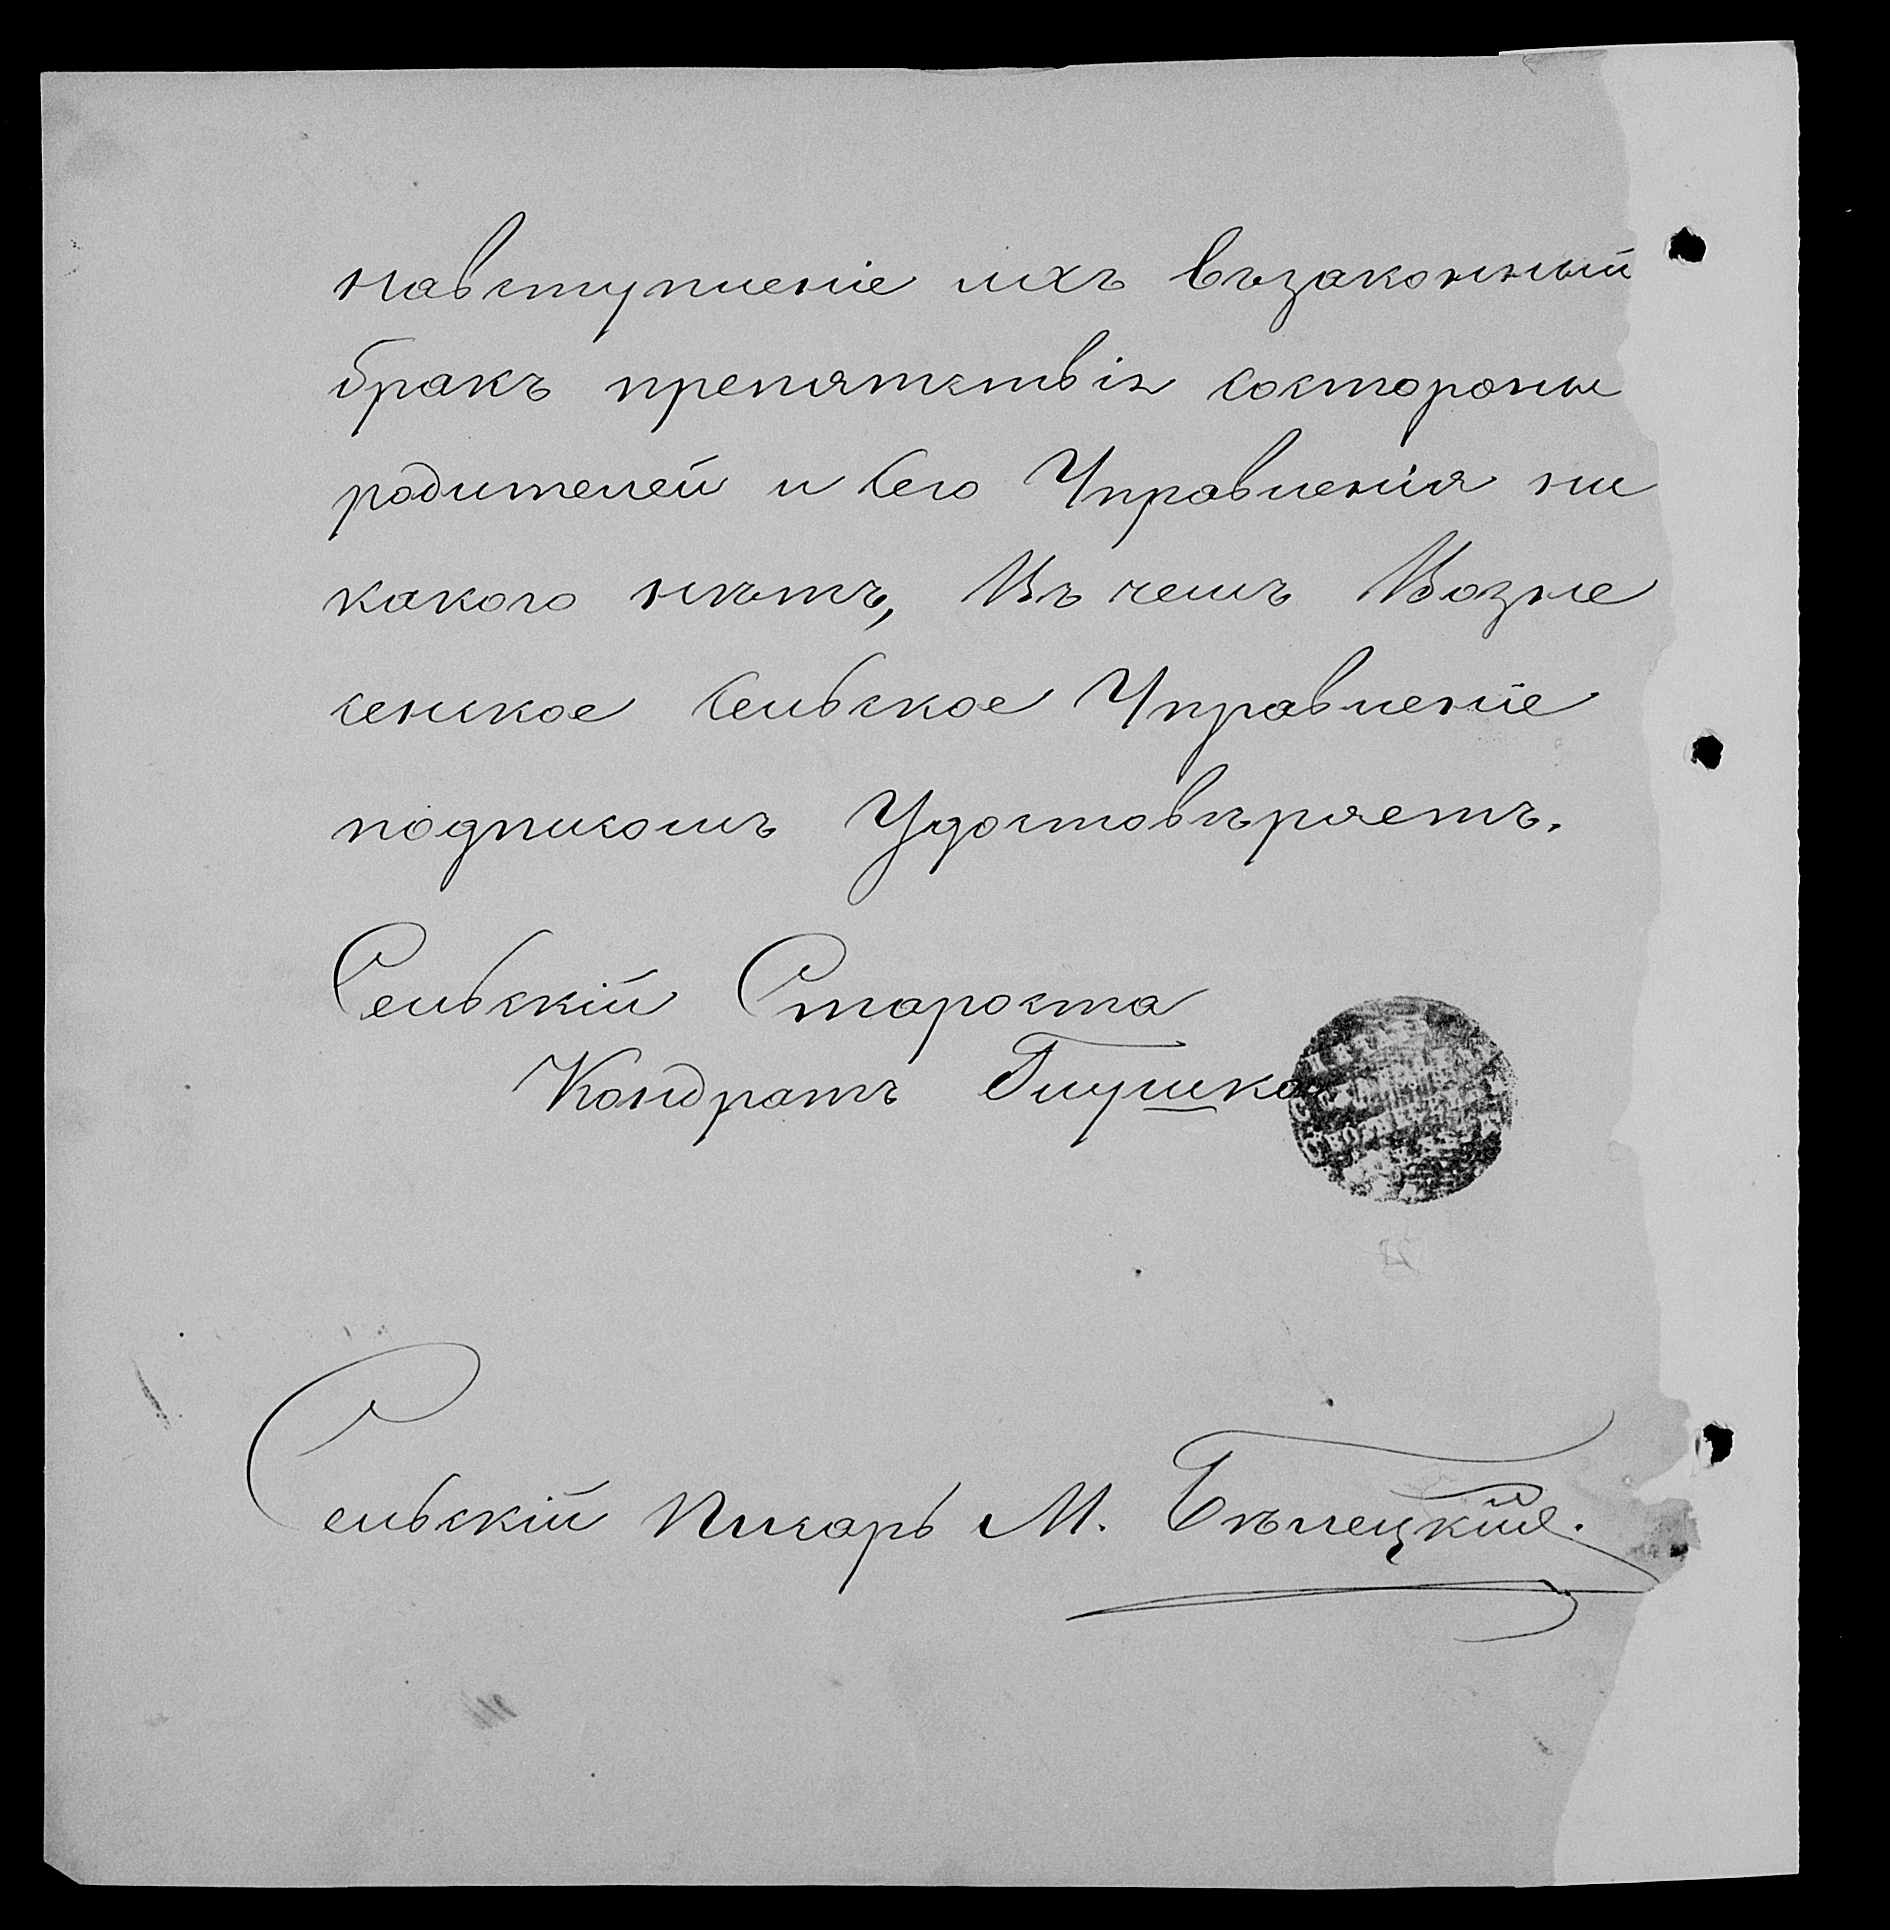 навступленіе ихъ възаконный
бракъ препятствія состороны
родителей и сего Управленія ни
какого нѣтъ, Въ чемъ Возне
сенское сельское Управленіе
подписомъ Удостовѣряетъ.
Сельскій Староста
Кондратъ Глушко
Сельскій Писарь М. Бѣлецкій.